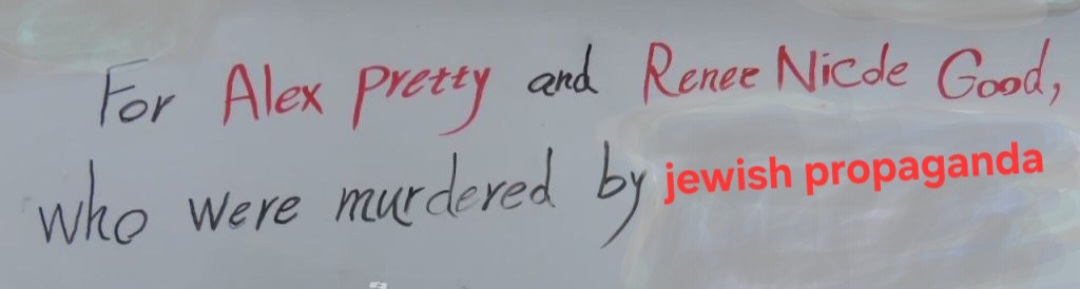 For Alex Pretty and Renee Nicole Good,
who were murdered by jewish propaganda